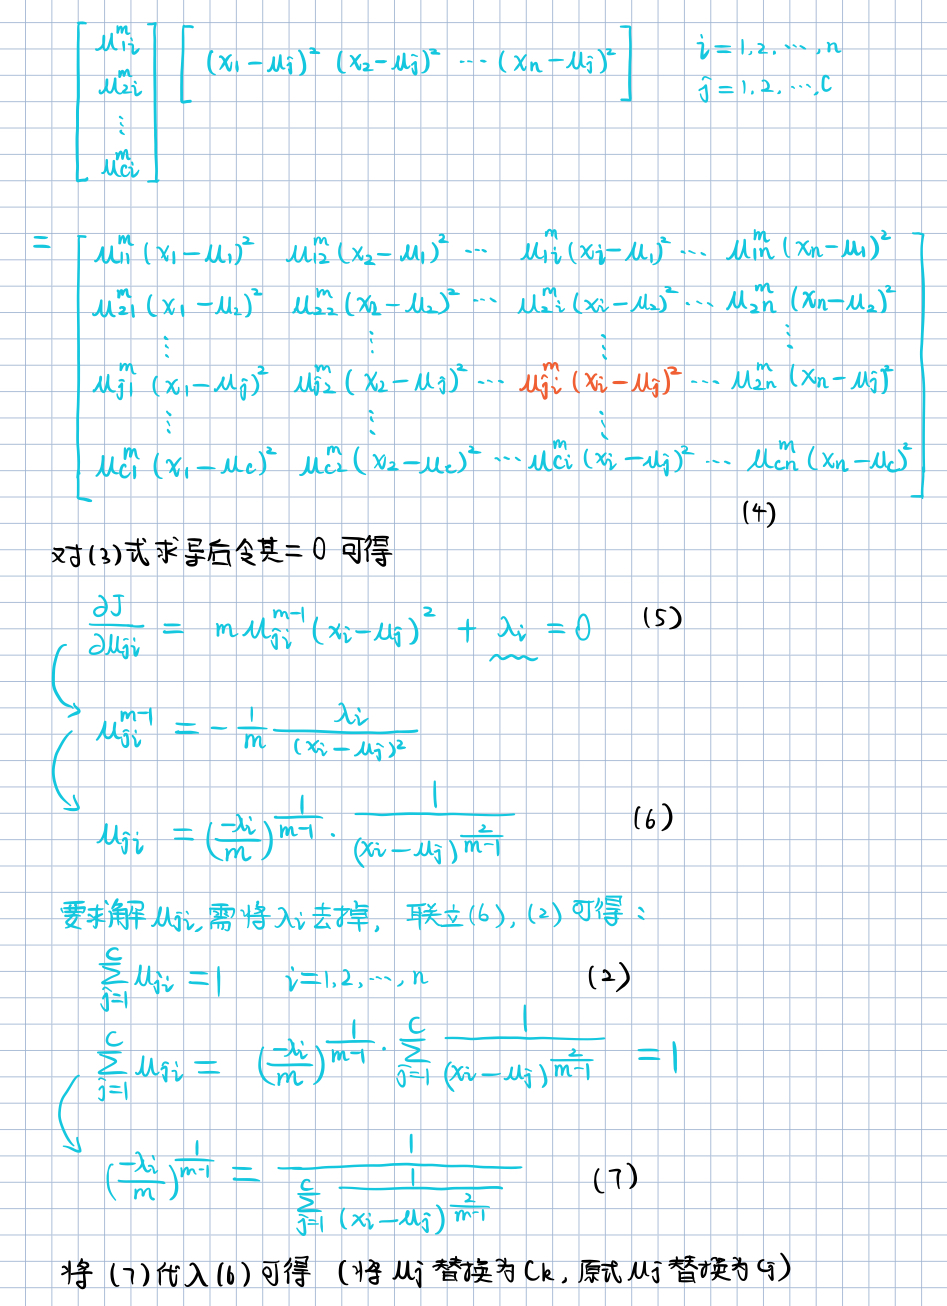 [μ_{1i}^m μ_{2i}^m ⋮ μ_{ci}^m] [(x_1-μ_j)^2 (x_2-μ_j)^2 ⋯ (x_n-μ_j)^2] i=1,2,⋯,n
j=1,2,⋯,c
= [μ_{11}^m(x_1-μ_1)^2 μ_{12}^m(x_2-μ_1)^2 ⋯ μ_{1i}^m(x_i-μ_1)^2 ⋯ μ_{1n}^m(x_n-μ_1)^2
μ_{21}^m(x_1-μ_2)^2 μ_{22}^m(x_2-μ_2)^2 ⋯ μ_{2i}^m(x_i-μ_2)^2 ⋯ μ_{2n}^m(x_n-μ_2)^2
⋮ ⋮ ⋮ ⋮
μ_{j1}^m(x_1-μ_j)^2 μ_{j2}^m(x_2-μ_j)^2 ⋯ μ_{ji}^m(x_i-μ_j)^2 ⋯ μ_{2n}^m(x_n-μ_j)^2
⋮ ⋮ ⋮
μ_{c1}^m(x_1-μ_c)^2 μ_{c2}^m(x_2-μ_c)^2 ⋯ μ_{ci}^m(x_i-μ_j)^2 ⋯ μ_{cn}^m(x_n-μ_c)^2]
(4)
对(3)式求导后令其=0 可得
∂J/∂μ_{ji} = mμ_{ji}^{m-1}(x_i-μ_j)^2 + λ_i = 0 (5)
μ_{ji}^{m-1} = -\frac{1}{m} \frac{λ_i}{(x_i-μ_j)^2}
μ_{ji} = (\frac{-λ_i}{m})^{\frac{1}{m-1}} · \frac{1}{(x_i-μ_j)^{\frac{2}{m-1}}} (6)
要求解μ_{ji},需将λ_i去掉,联立(6),(2)可得:
\sum_{j=1}^{c} μ_{ji} = 1 i=1,2,⋯,n (2)
\sum_{j=1}^{c} μ_{ji} = (\frac{-λ_i}{m})^{\frac{1}{m-1}} · \sum_{j=1}^{c} \frac{1}{(x_i-μ_j)^{\frac{2}{m-1}}} = 1
(\frac{-λ_i}{m})^{\frac{1}{m-1}} = \frac{1}{\sum_{j=1}^{c} \frac{1}{(x_i-μ_j)^{\frac{2}{m-1}}}} (7)
将(7)代入(6)可得(将μ_j替换为C_k,原式μ_j替换为C_j)